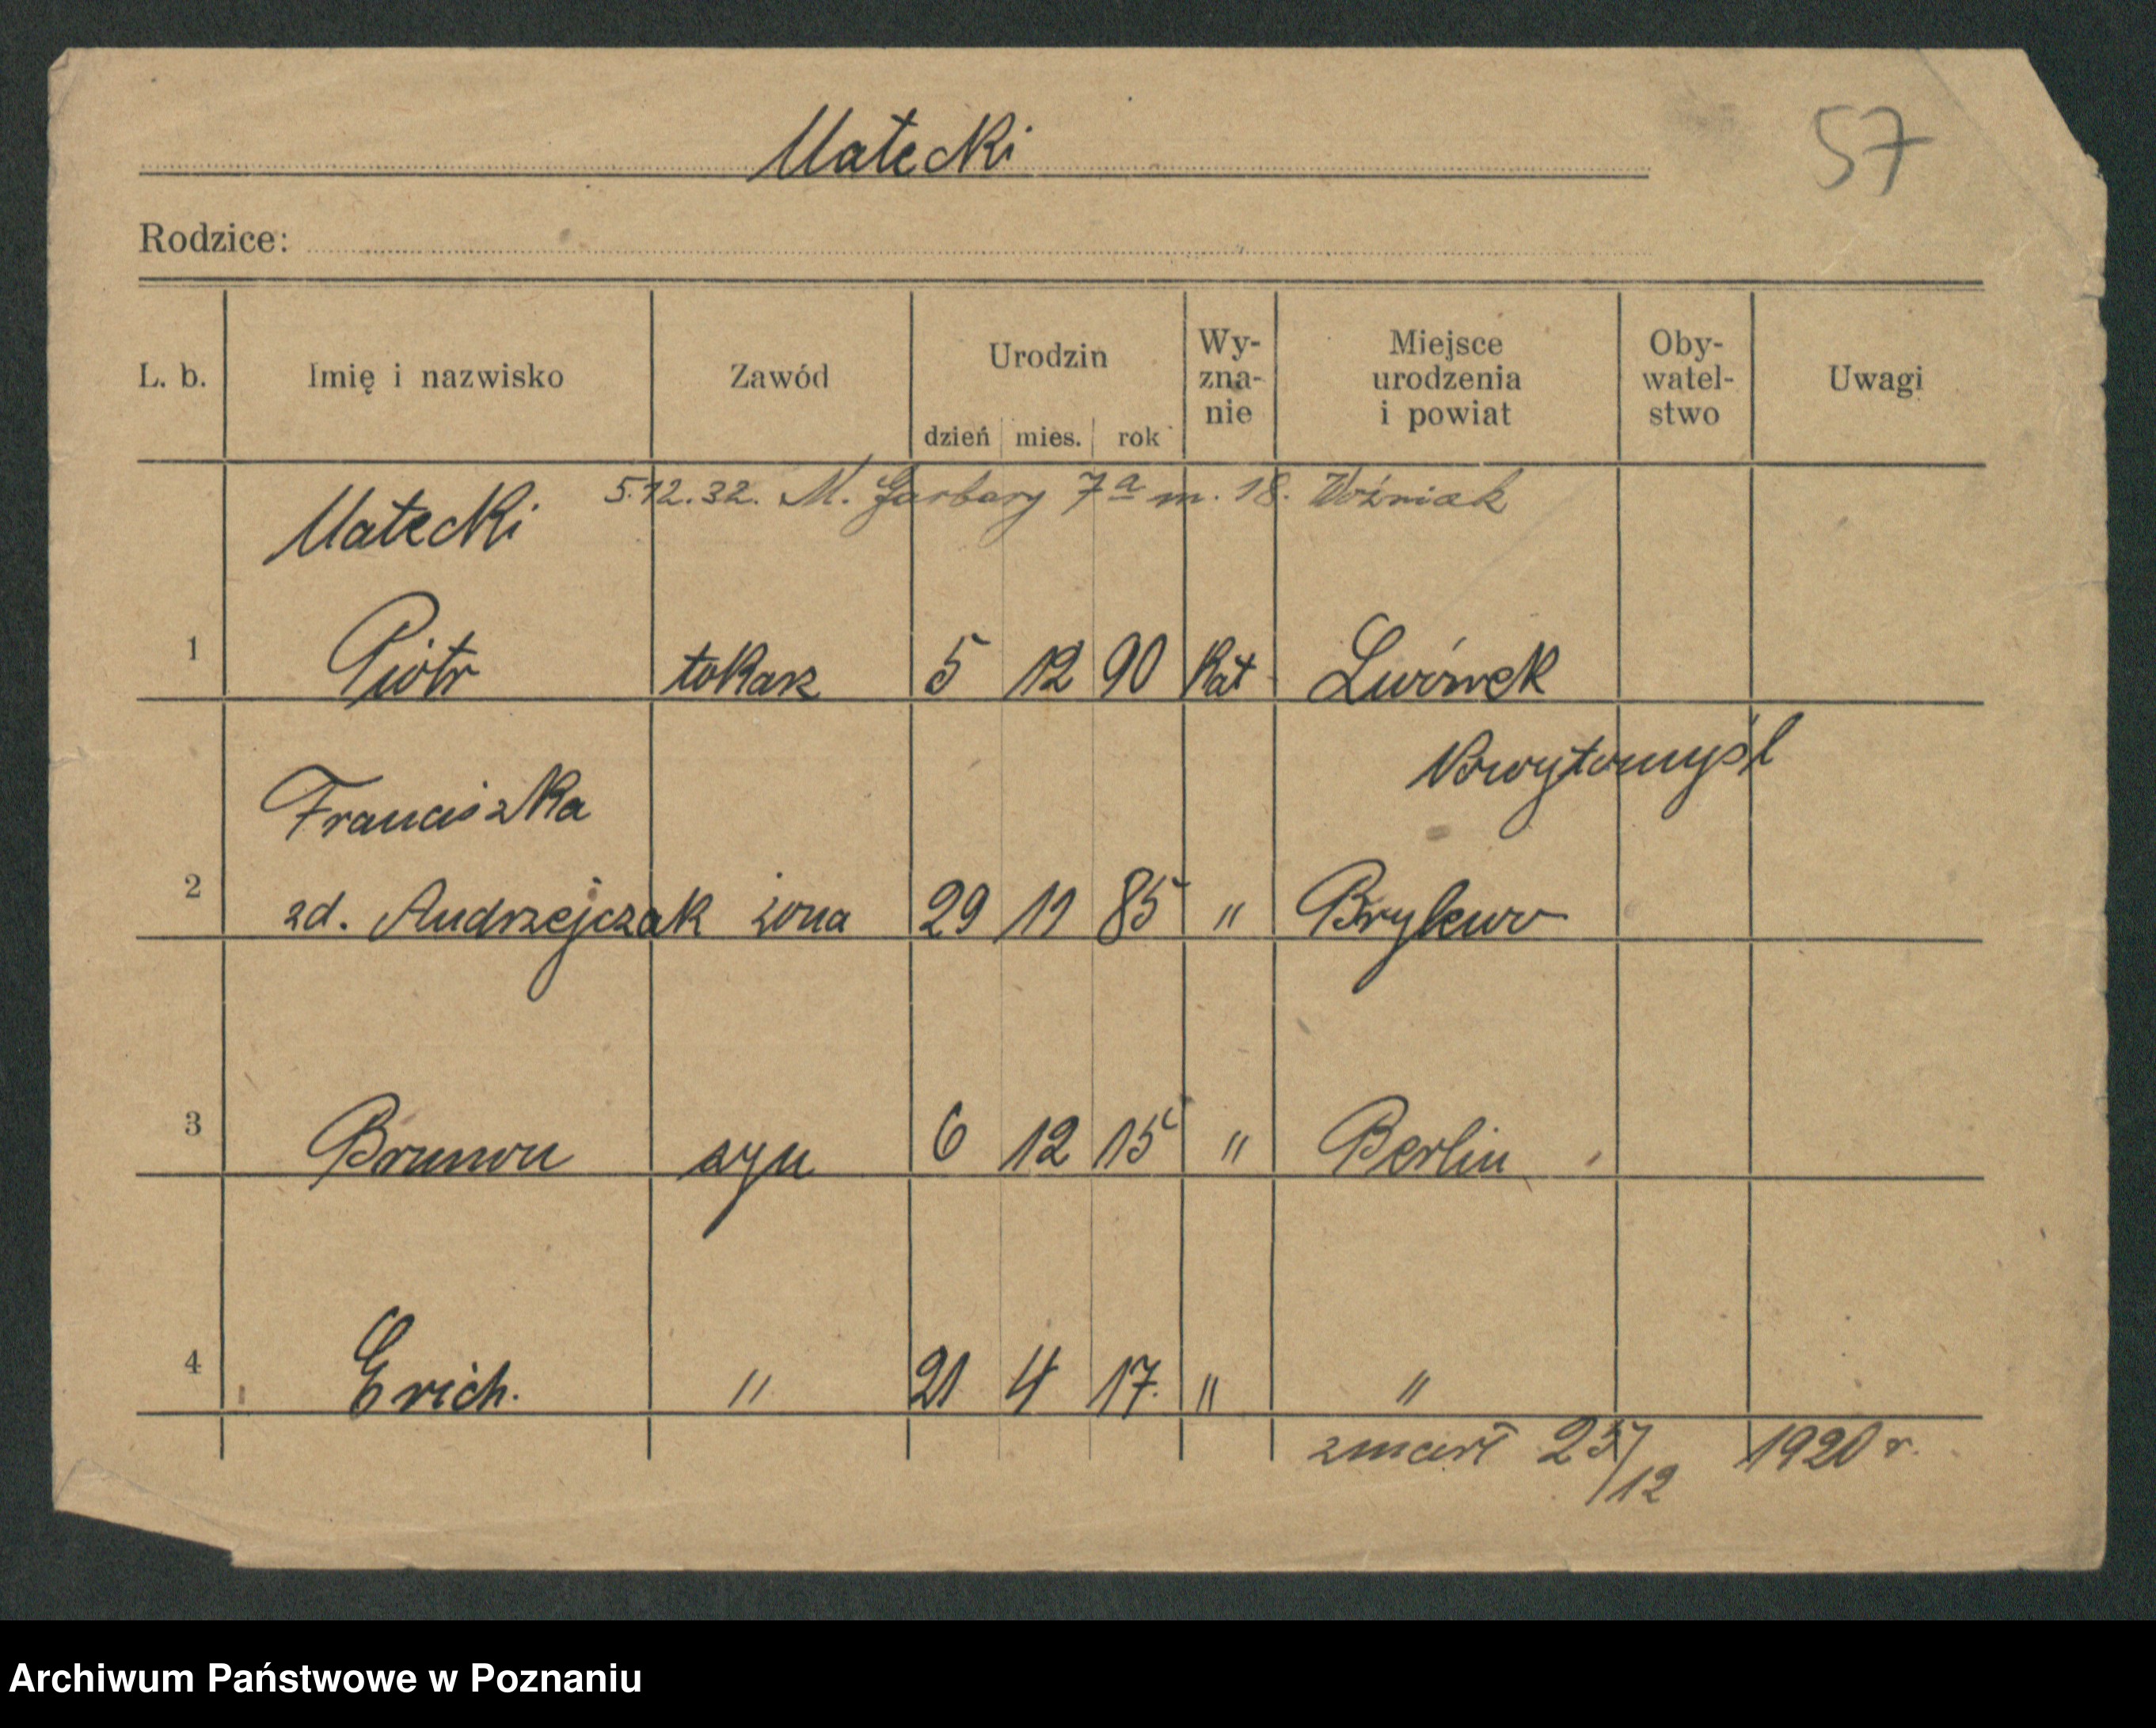 Małecki
57
Rodzice:
L. b. Imię i nazwisko Zawód Urodzin dzień mies. rok Wy-zna-nie Miejsce urodzenia i powiat Oby-watel-stwo Uwagi
5.12.32. M. Garbary 7a m. 18. Woźniak
Małecki
1 Piotr tokarz 5 12 90 kat Lwówek
Nowytomyśl
Franciszka
2 zd. Andrzejczak żona 29 11 85 " Brylewo
3 Brunon syn 6 12 15 " Berlin
4 Erich. " 21 4 17. " "
zmarł 25/12 1920 r.
Archiwum Państwowe w Poznaniu